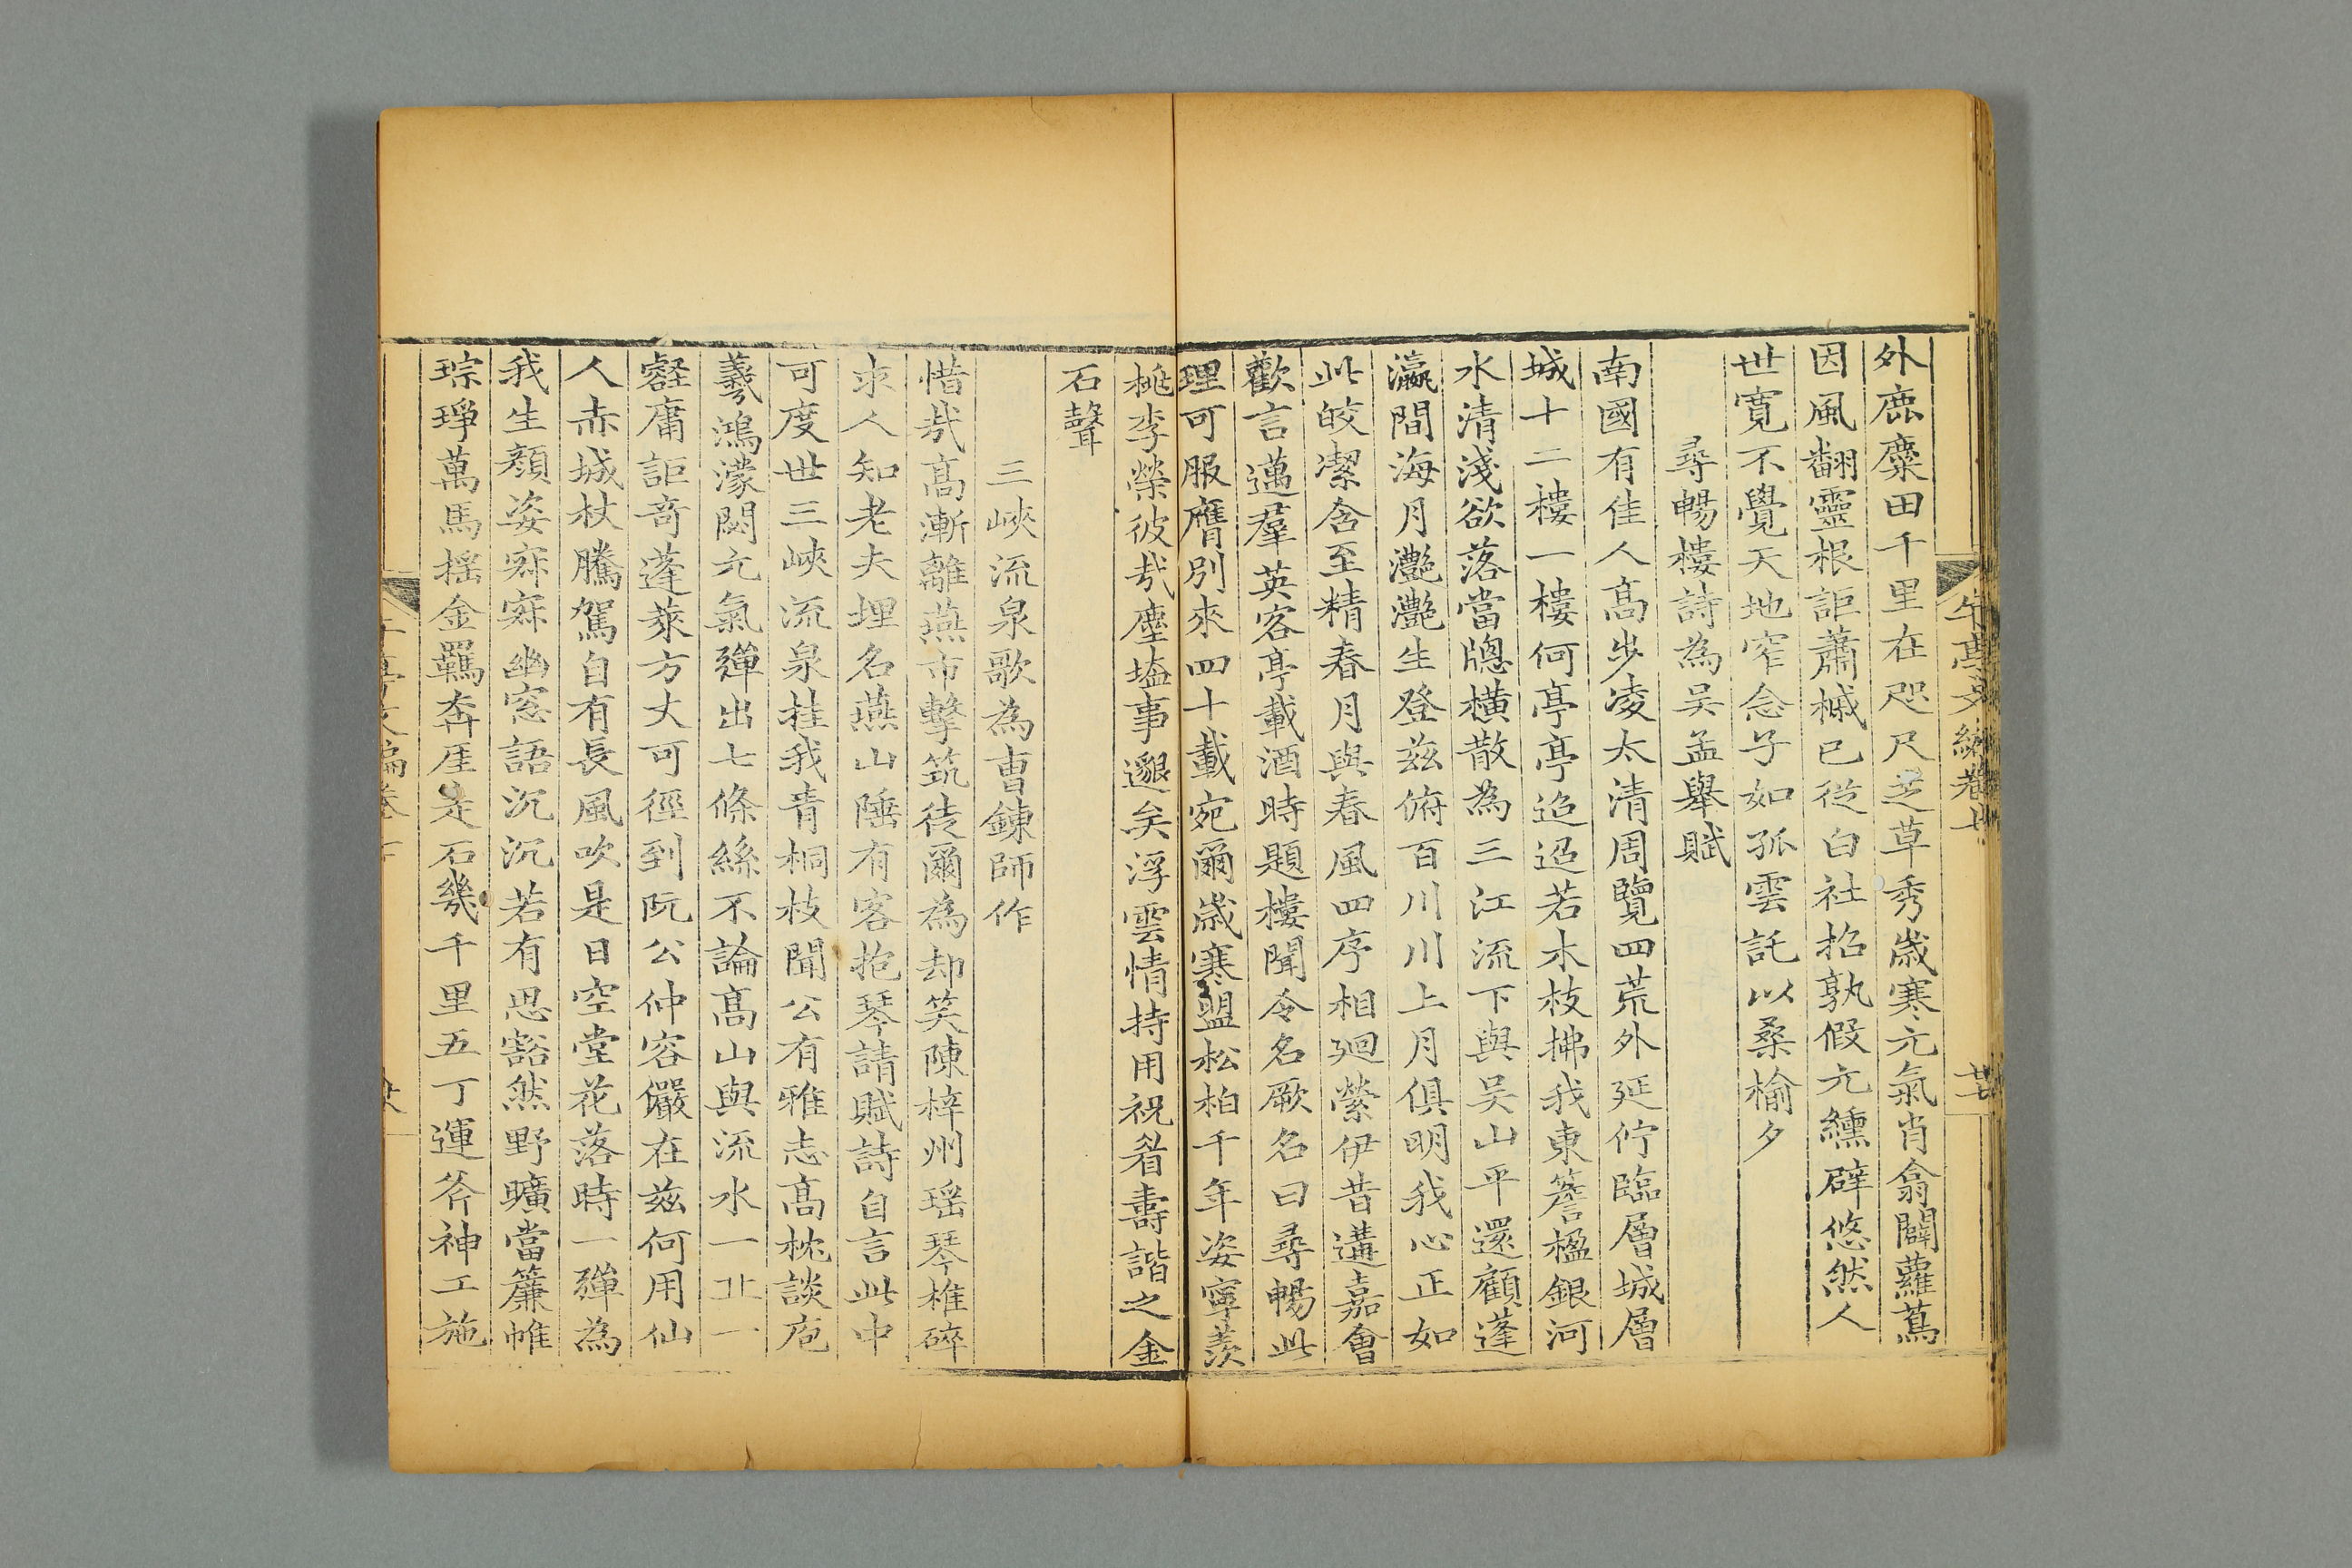 外鹿麋田千里在咫尺芝草秀歲寒元氣肖翕闢蘿蔦
因風翻靈根詎蕭槭已從白社招孰假元纁辟悠然人
世寬不覺天地窄念子如孤雲託以桑榆夕
尋暢樓詩為吴孟舉賦
南國有佳人高步凌太清周覽四荒外延佇臨層城層
城十二樓一樓何亭亭迢迢若木枝拂我東簷楹銀河
水清淺欲落當牕橫散為三江流下與吴山平還顧蓬
瀛間海月灔灔生登兹俯百川川上月俱明我心正如
此皎潔含至精春月與春風四序相廻縈伊昔遘嘉會
歡言邁羣英客亭載酒時題樓聞令名厥名曰尋暢此
理可服膺別來四十載宛爾歲寒盟松柏千年姿寧羨
桃李榮彼哉塵壒事邈矣浮雲情持用祝眉壽諧之金
石聲
三峽流泉歌為曹錬師作
惜哉高漸離燕市擊筑徒爾為却笑陳梓州瑶琴椎碎
求人知老夫埋名燕山陲有客抱琴請賦詩自言此中
可度世三峽流泉挂我青桐枝聞公有雅志高枕談庖
羲鴻濛闢元氣彈出七條絲不論高山與流水一北一
嵇庸詎奇蓬萊方丈可徑到阮公仲容儼在兹何用仙
人赤城杖騰駕自有長風吹是日空堂花落時一彈為
我生顏姿寂寂幽窓語沉沉若有思豁然野曠當簾帷
琮琤萬馬摇金羈奔厓走石幾千里五丁運斧神工施
午亭文編卷七
廿